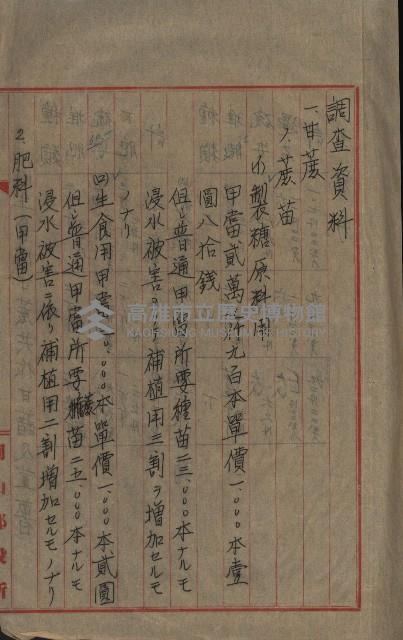 調査資料
一、甘蔗
1、蔗苗
(イ)製糖原料用
甲當貳萬 九百本單價一、〇〇〇本壹
圓八拾銭
但シ普通甲當所要種苗二三、〇〇〇本ナルモ
浸水被害 補植用三割ヲ增加セルモ
ノナリ
(ロ)生食用甲當 〇〇〇本單價一、〇〇〇本貳圓
但シ普通甲當所要蔗苗二五、〇〇〇本ナルモ
浸水被害ニ依リ補植用二割増加セルモノナリ
2、肥料(甲當)
高雄市立歷史博物館
KAOHSIUNG MUSEUM OF HISTORY